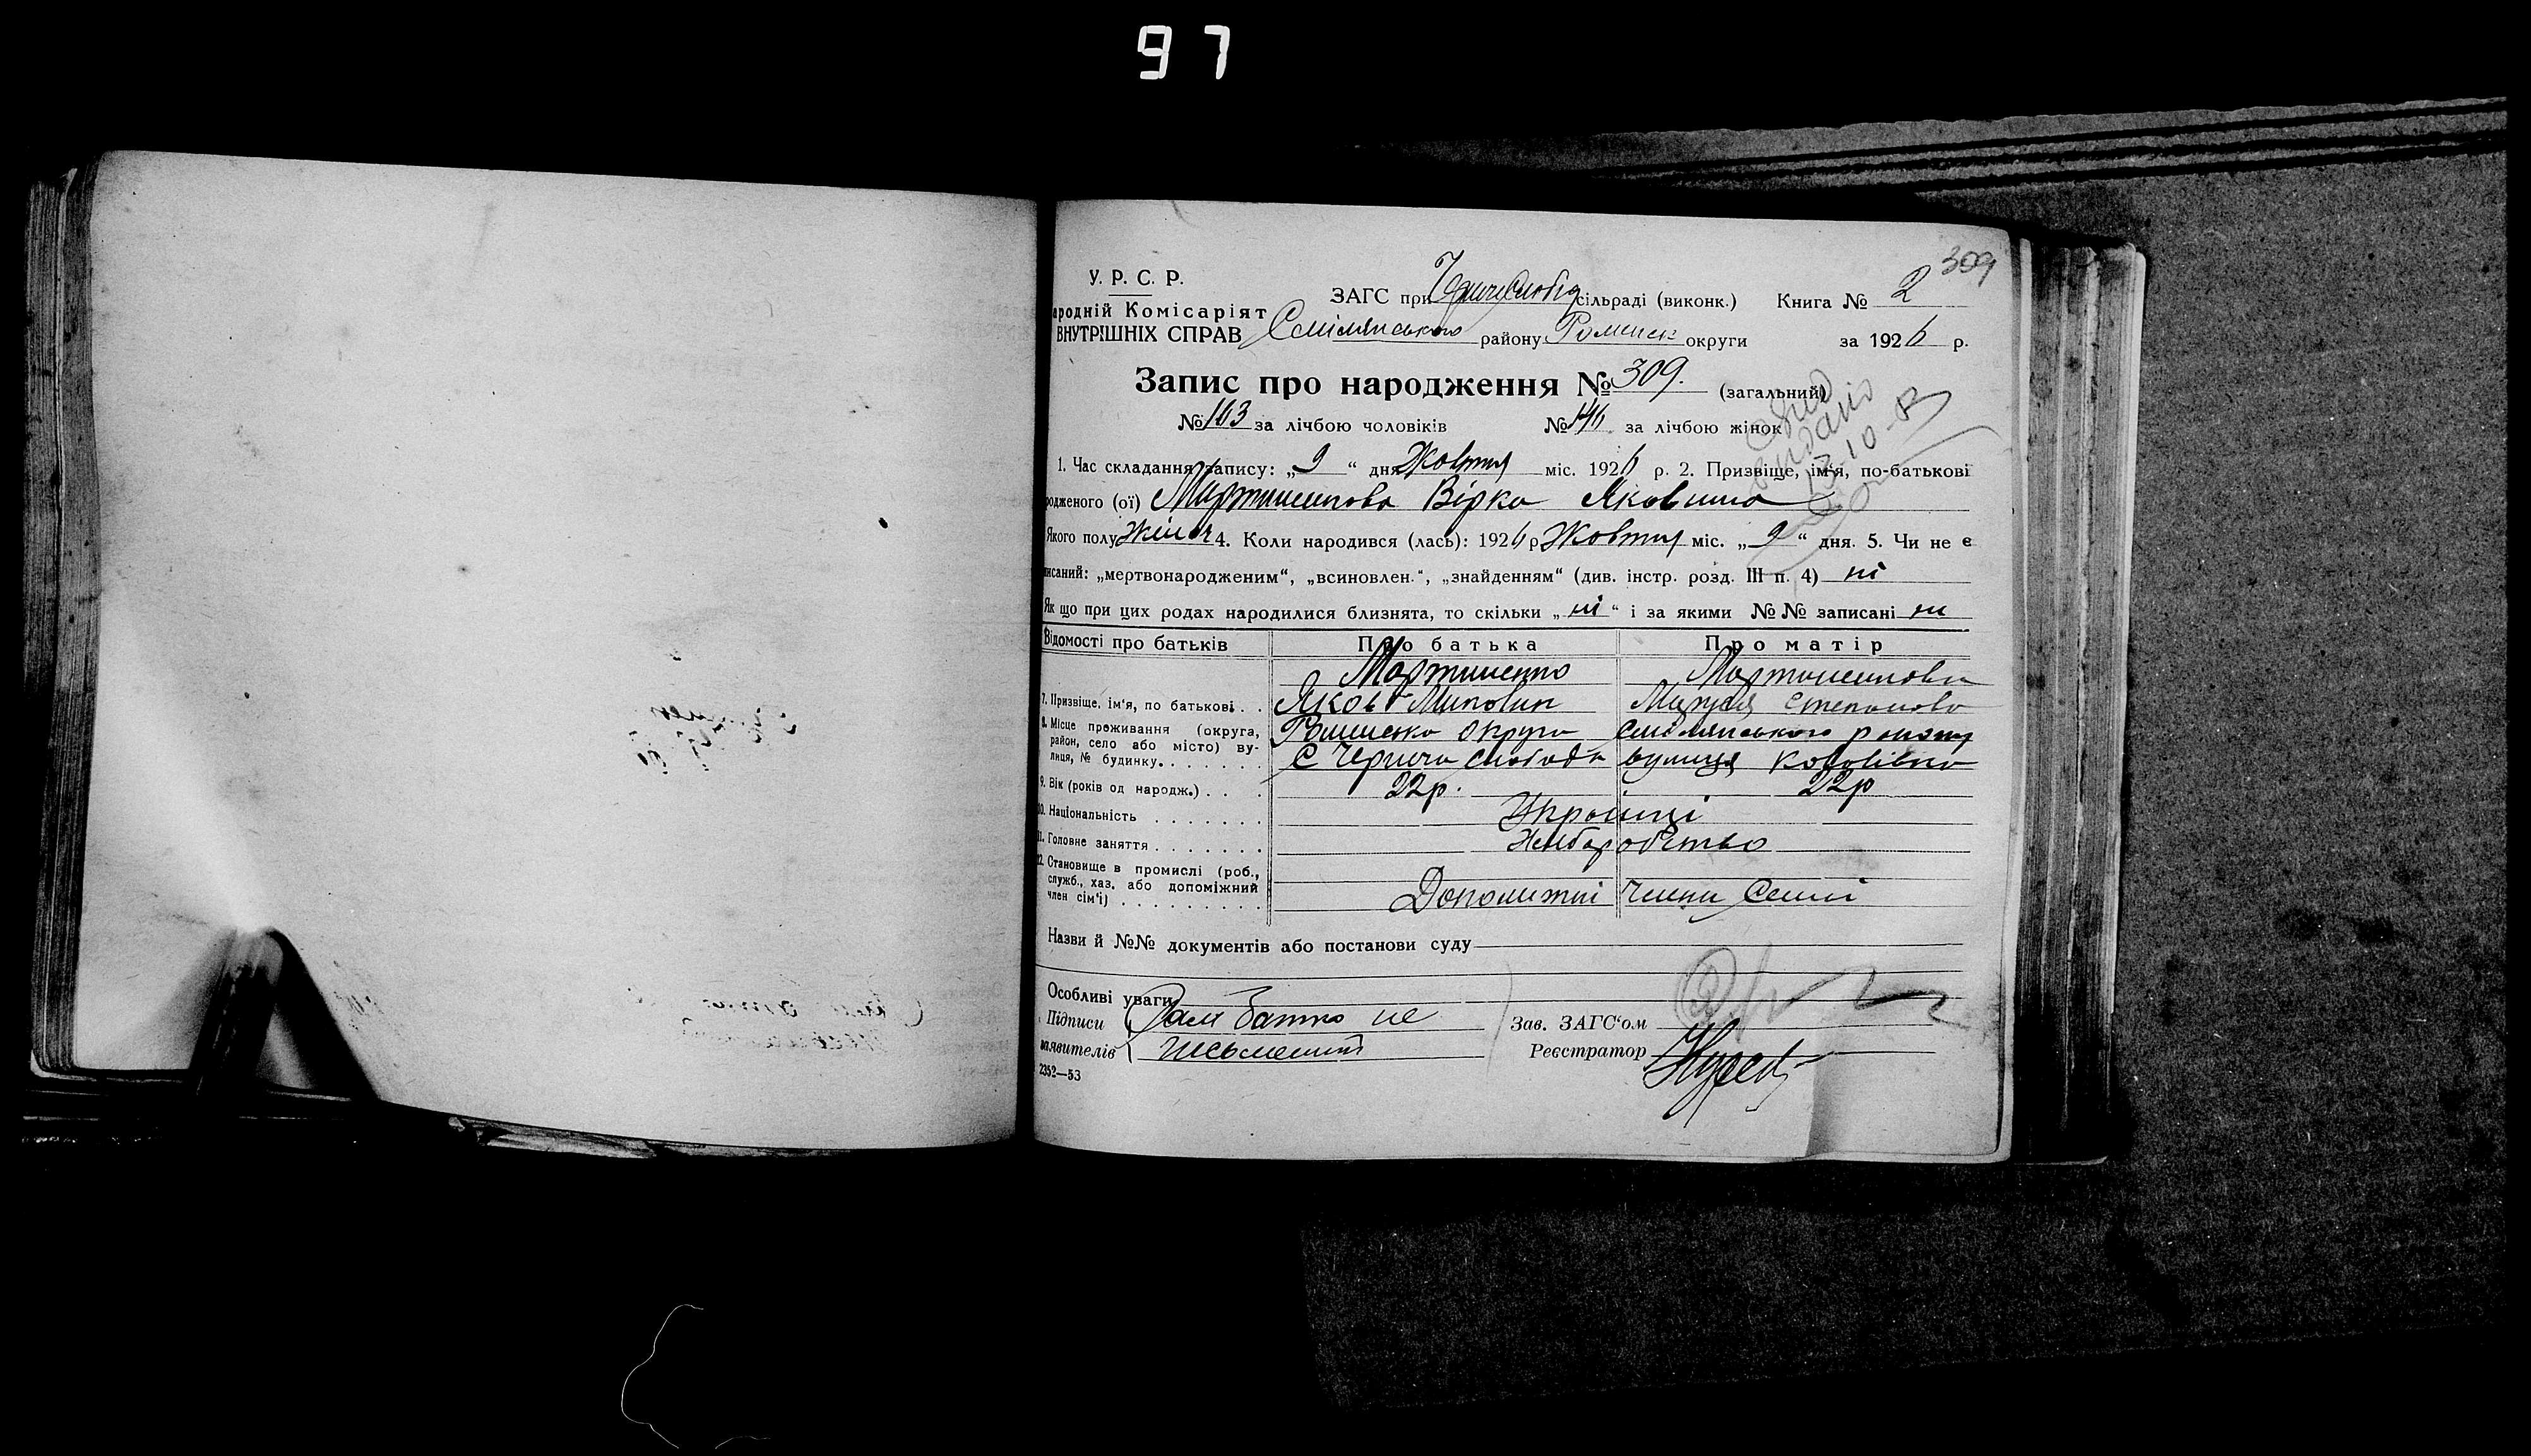 97
309
У. Р. С. Р.
ародній Комісаріят
ВНУТРІШНІХ СПРАВ
ЗАГС при сільраді (виконк.) Книга № 2
Смілянського району Роменск округи за 1926 р.
Запис про народження № 309. (загальний)
№ 163 за лічбою чоловіків № 146 за лічбою жінок
видано
1. Час складання запису: „9“ дня Жовтня міс. 1926 р. 2. Призвіще, ім‘я, по-батькові
родженого (ої) Мартиненкова Вірка Яковина
Якого полу 4. Коли народився (лась): 1926 р Жовтня міс. „9“ дня. 5. Чи не є
исаний: „мертвонародженим“, „всиновлен.“, „знайденням“ (див. інстр. розд. III п. 4) ні
Як що при цих родах народилися близнята, то скільки „ні“ і за якими №№ записані ни
Відомості про батьків Про батька Про матір
Мартиненко Мартиненкова
7. Призвіще, ім‘я, по батькові . . Яков Маруся Степанова
8. Місце проживання (округа, район, село або місто) ву-лиця, № будинку. . . . . . . Роменська округа Смілянського району
С Чернеча слобода вулиця
9. Вік (років од народж.) . . . 22р. 22р
10. Національність . . . . . . . Українці
11. Головне заняття . . . . . . . Хліборобство
12. Становище в промислі (роб.,
служб., хаз. або допоміжний
член сім‘ї) . . . . . . . . . . Допоміжні члени Семії
Назви й №№ документів або постанови суду
Особливі уваги
Підписи Сам батько не Зав. ЗАГС‘ом
заявителів письменний Реєстратор
2352—53